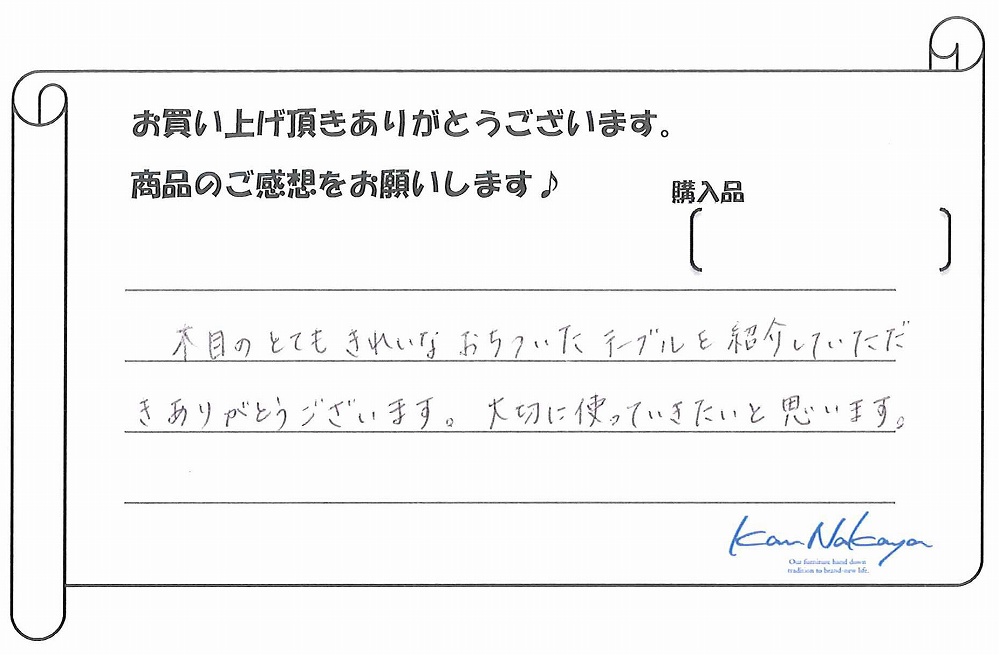 お買い上げ頂きありがとうございます。
商品のご感想をお願いします♪
購入品
木目のとてもきれいなおちついたテーブルを紹介していただ
きありがとうございます。大切に使っていきたいと思います。
Kan Nakaya
Our furniture hand down
tradition to brand-new life.